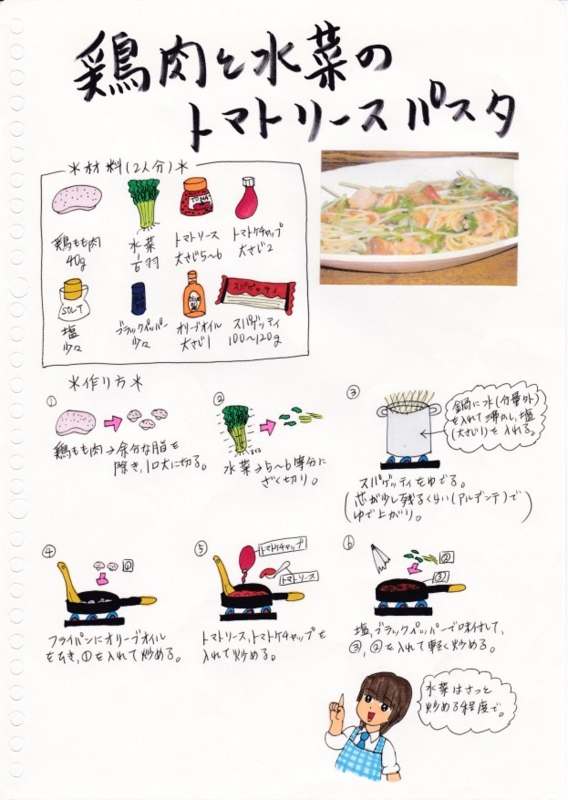 鶏肉と水菜の
トマトソースパスタ
*材料(2人分)*
鶏もも肉
40g
水菜
1/6羽
トマトソース
大さじ5~6
トマトケチャップ
大さじ2
SOLT
塩
少々
ブラックペッパー
少々
オリーブオイル
大さじ1
スパゲッティ
スパゲッティ
100~120g
*作り方*
①
鶏もも肉→余分な脂を
除き、1口大に切る。
②
水菜→5~6等分に
ざく切り。
③
鍋に水(分量外)
を入れて沸かし、塩
(大さじ1)を入れる。
スパゲッティをゆでる。
(芯が少し残るくらい(アルデンテ)で
ゆで上がり。)
④
①
フライパンにオリーブオイル
をひき、①を入れて炒める。
⑤
トマトケチャップ
トマトソース
トマトソース、トマトケチャップを
入れて炒める。
⑥
②
③
塩、ブラックペッパーで味付して、
③、②を入れて軽く炒める。
水菜はさっと
炒める程度で。